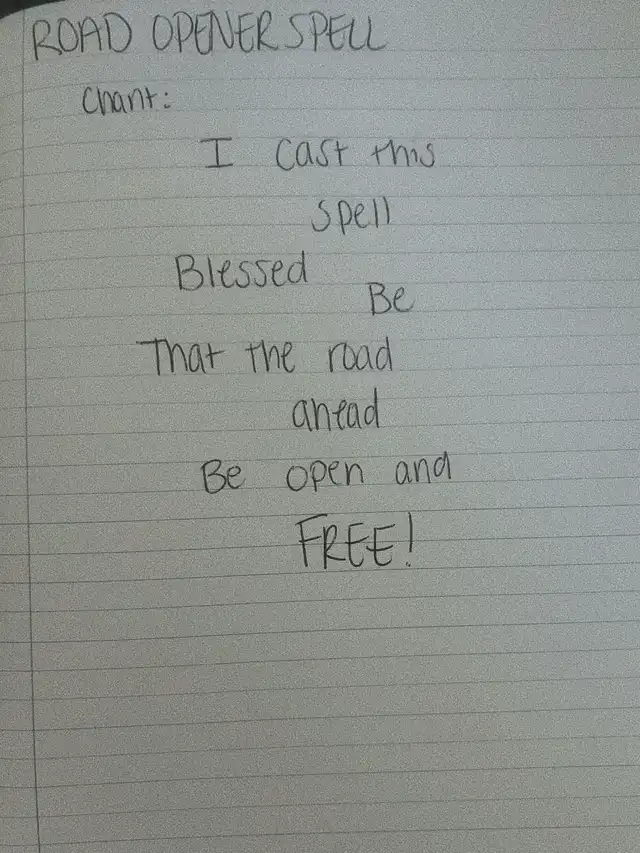 ROAD OPENER SPELL
Chant:
I cast this
spell
Blessed
Be
That the road
ahead
Be open and
FREE!